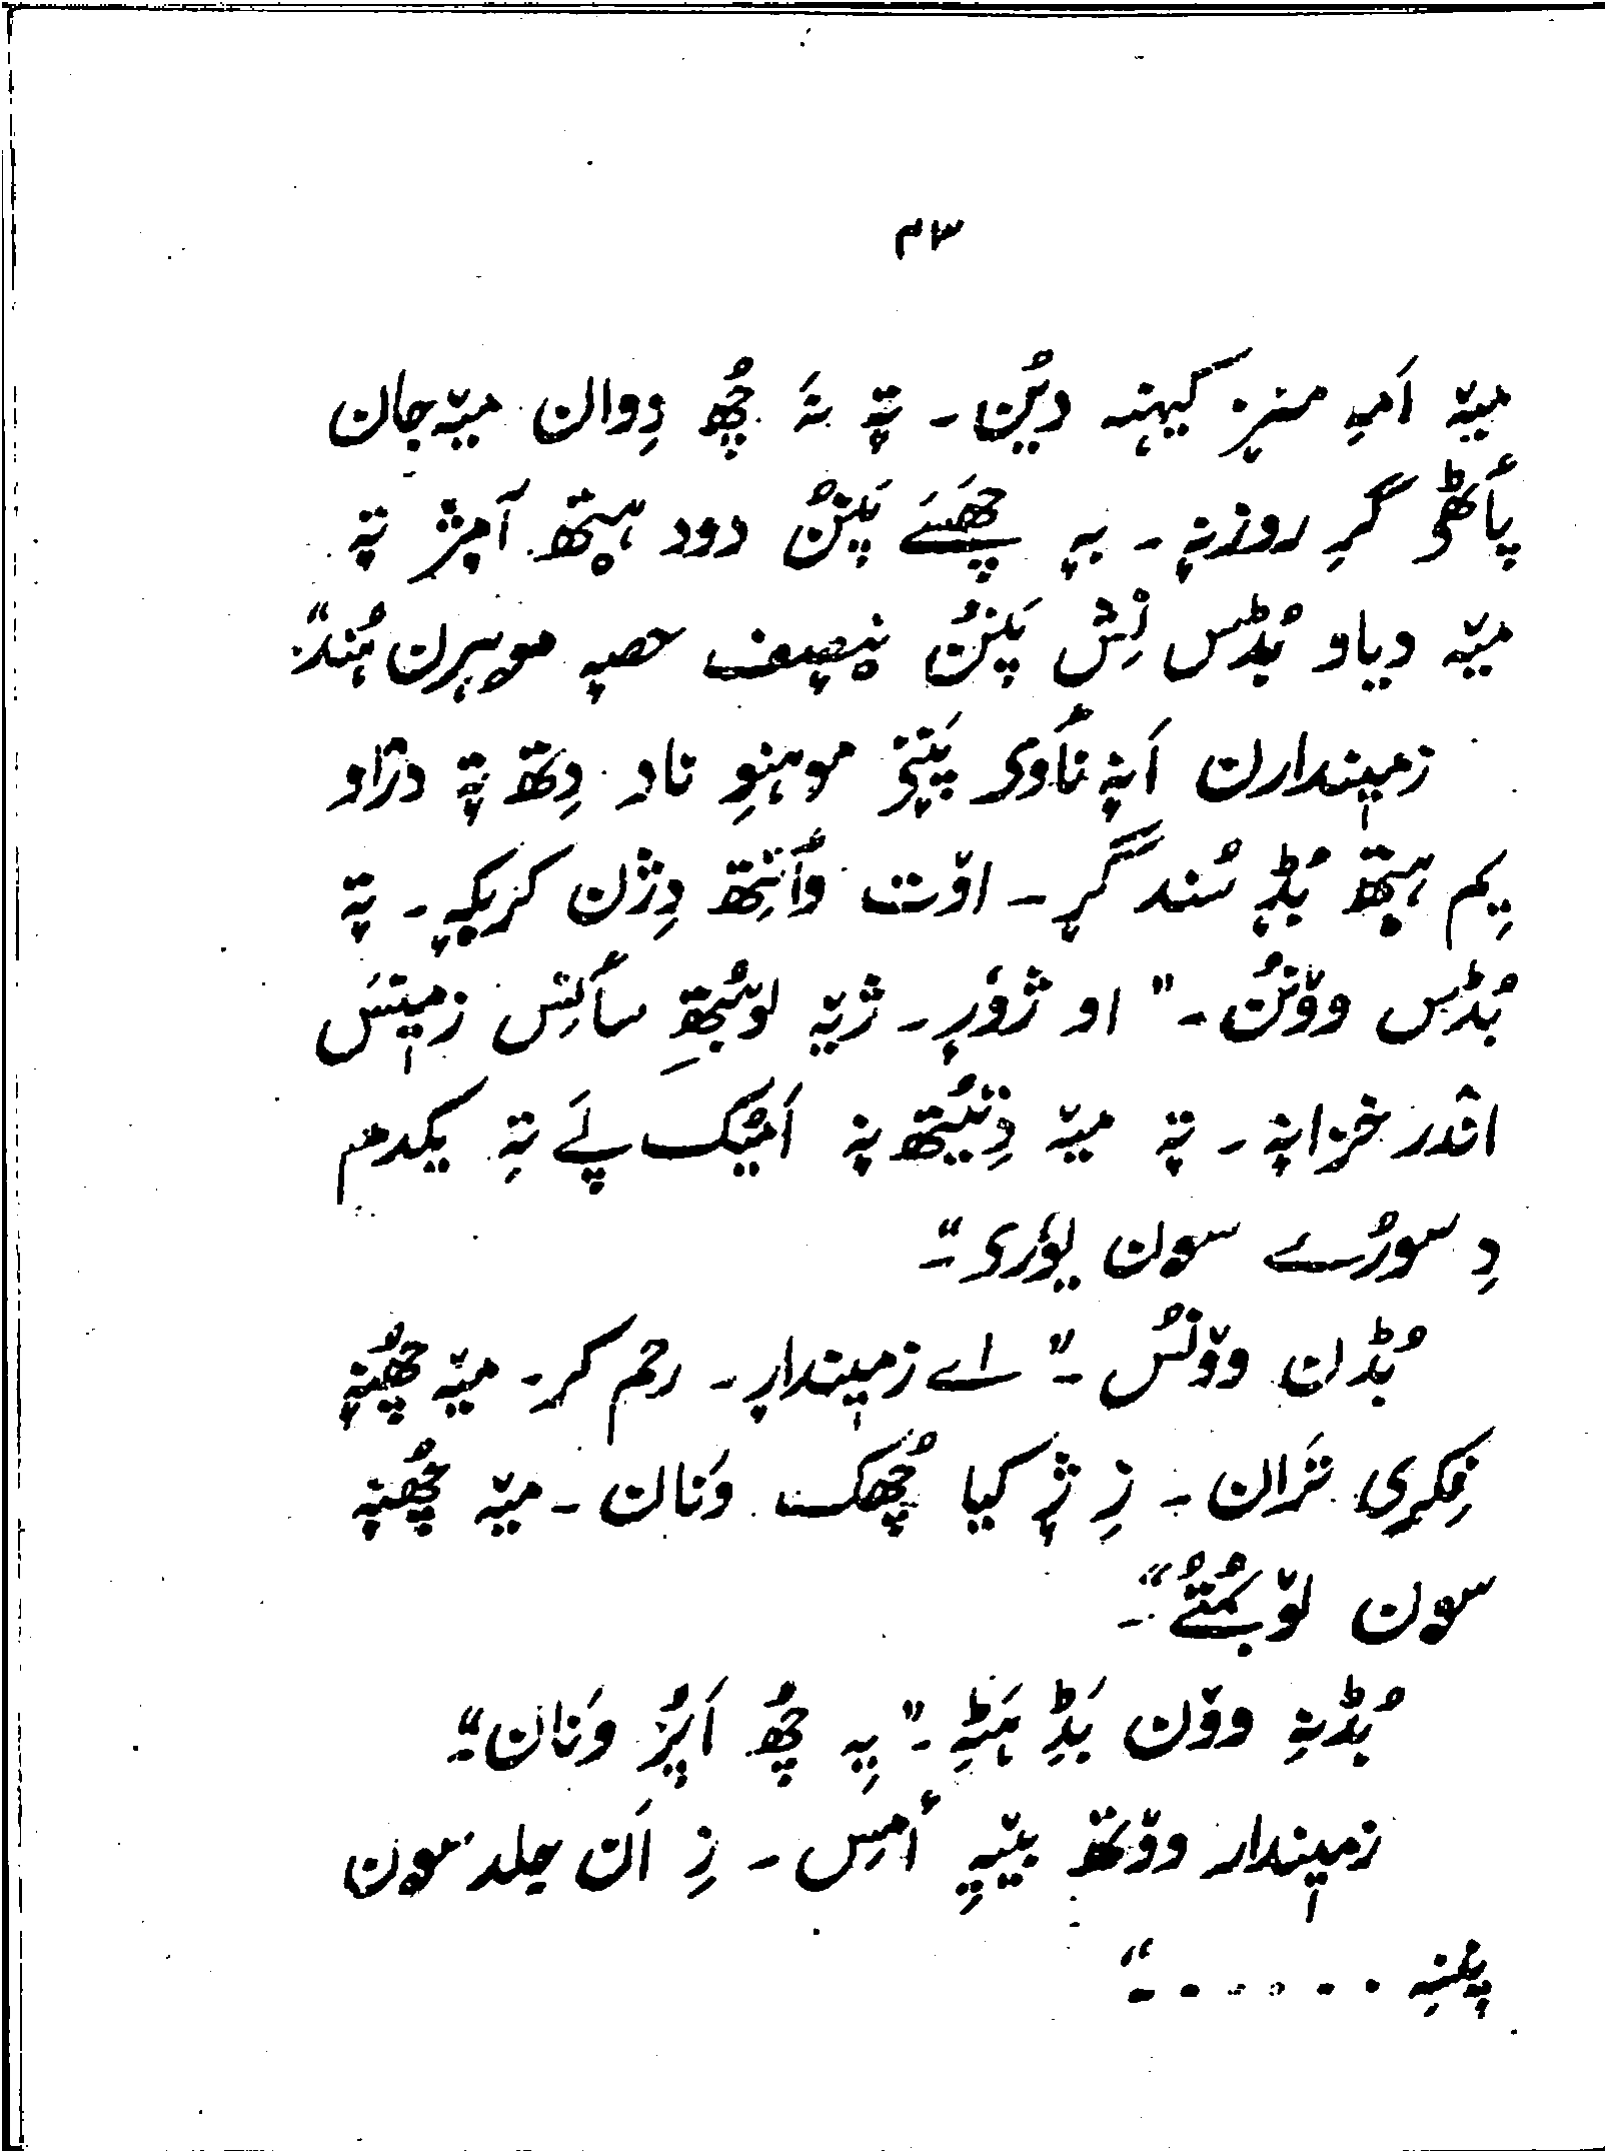 ۴۳
میٚہ اَمہِ منز کیہنہ دیُن۔ تہٕ نہَ چھُ دِوان میٚہ جان
پٲٹھی گرِ روزنہٕ۔ بہٕ چھَسَے پَننُ دود ہیٚتھ آمژ تہٕ
میٚہ دیاو بُڈس نِش پَننُ نِصف حصہٕ موہرن ہُند"
زمیٖندارن اَنہٕ ناوی پَتنیٚ موہنوِ ناد دِتھ تہٕ دراو
یِم ہیٚتھ بُڈٕ سُند گرٕ۔ اوٚت وٲتِتھ دِژن کریکہٕ۔ تہٕ
بُڈس ووٚنُن۔" او ژوٗرٕ۔ ژیٚہ لوٚبُتھِ سٲنِس زمیٖنَس
اندر خزانہٕ۔ تہٕ میٚہ دِتیُتھ نہٕ اَمیُک پَے تہِ یکدم
دِ سورُے سون یوٗری"۔
بُڈن ووٚنُس۔" اے زمیٖندارٕ۔ رحم کر۔ میٚہ چھُنہٕ
فِکرِی تَران۔ زِ ژٕ کیا چھُک وَنان۔ میٚہ چھُنہٕ
سون لوٚبمُتُے"۔
بُڈنہِ ووٚن بَڈِ ہَٹہِ۔" یِہ چھُ اَپُز وَنان"۔
زمیٖندار ووٚتھ بیٚیہِ أمِس۔ زِ اَن جلد سون
پننہِ ......۔"